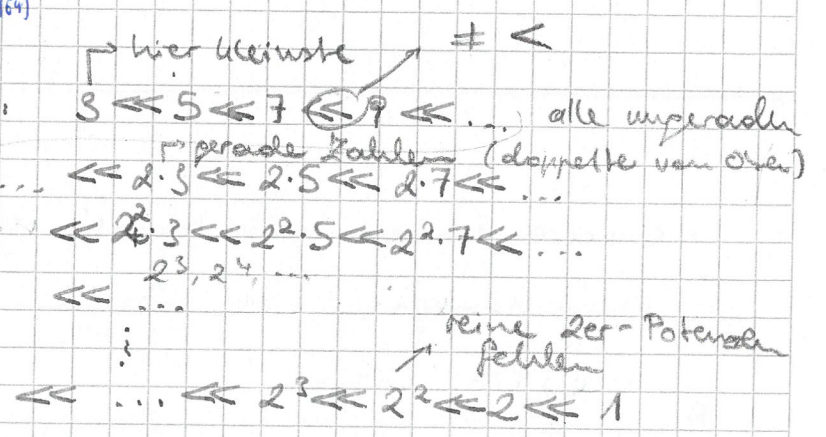 64)
hier kleinste ≠ <
3 << 5 << 7 << 9 << ... alle ungeraden
gerade Zahlen (doppelte von oben)
... << 2·3 << 2·5 << 2·7 << ...
<< 2²·3 << 2²·5 << 2²·7 << ...
2³, 2⁴, ...
<< ...
⋮
reine 2er-Potenzen
fehlen
<< ... << 2³ << 2² << 2 << 1